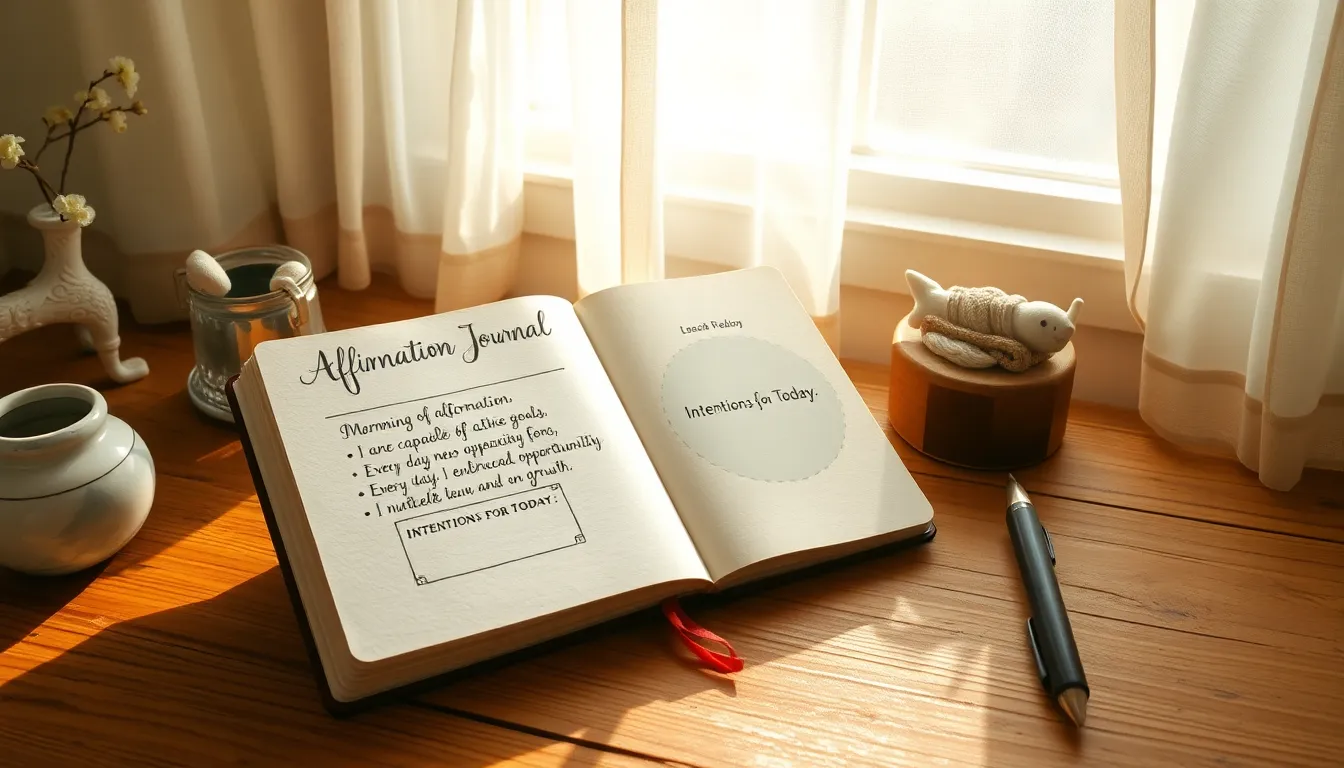 Affirmation Journal
Morning of alformation,
• I are capable of atkie goals,
• Every day new oppenckiy fons,
• Every day, I enbraced opportunnilly
• I nutickle leau and on grouth.
INTENTIONS FOR TODAY:
Intentions for Today.